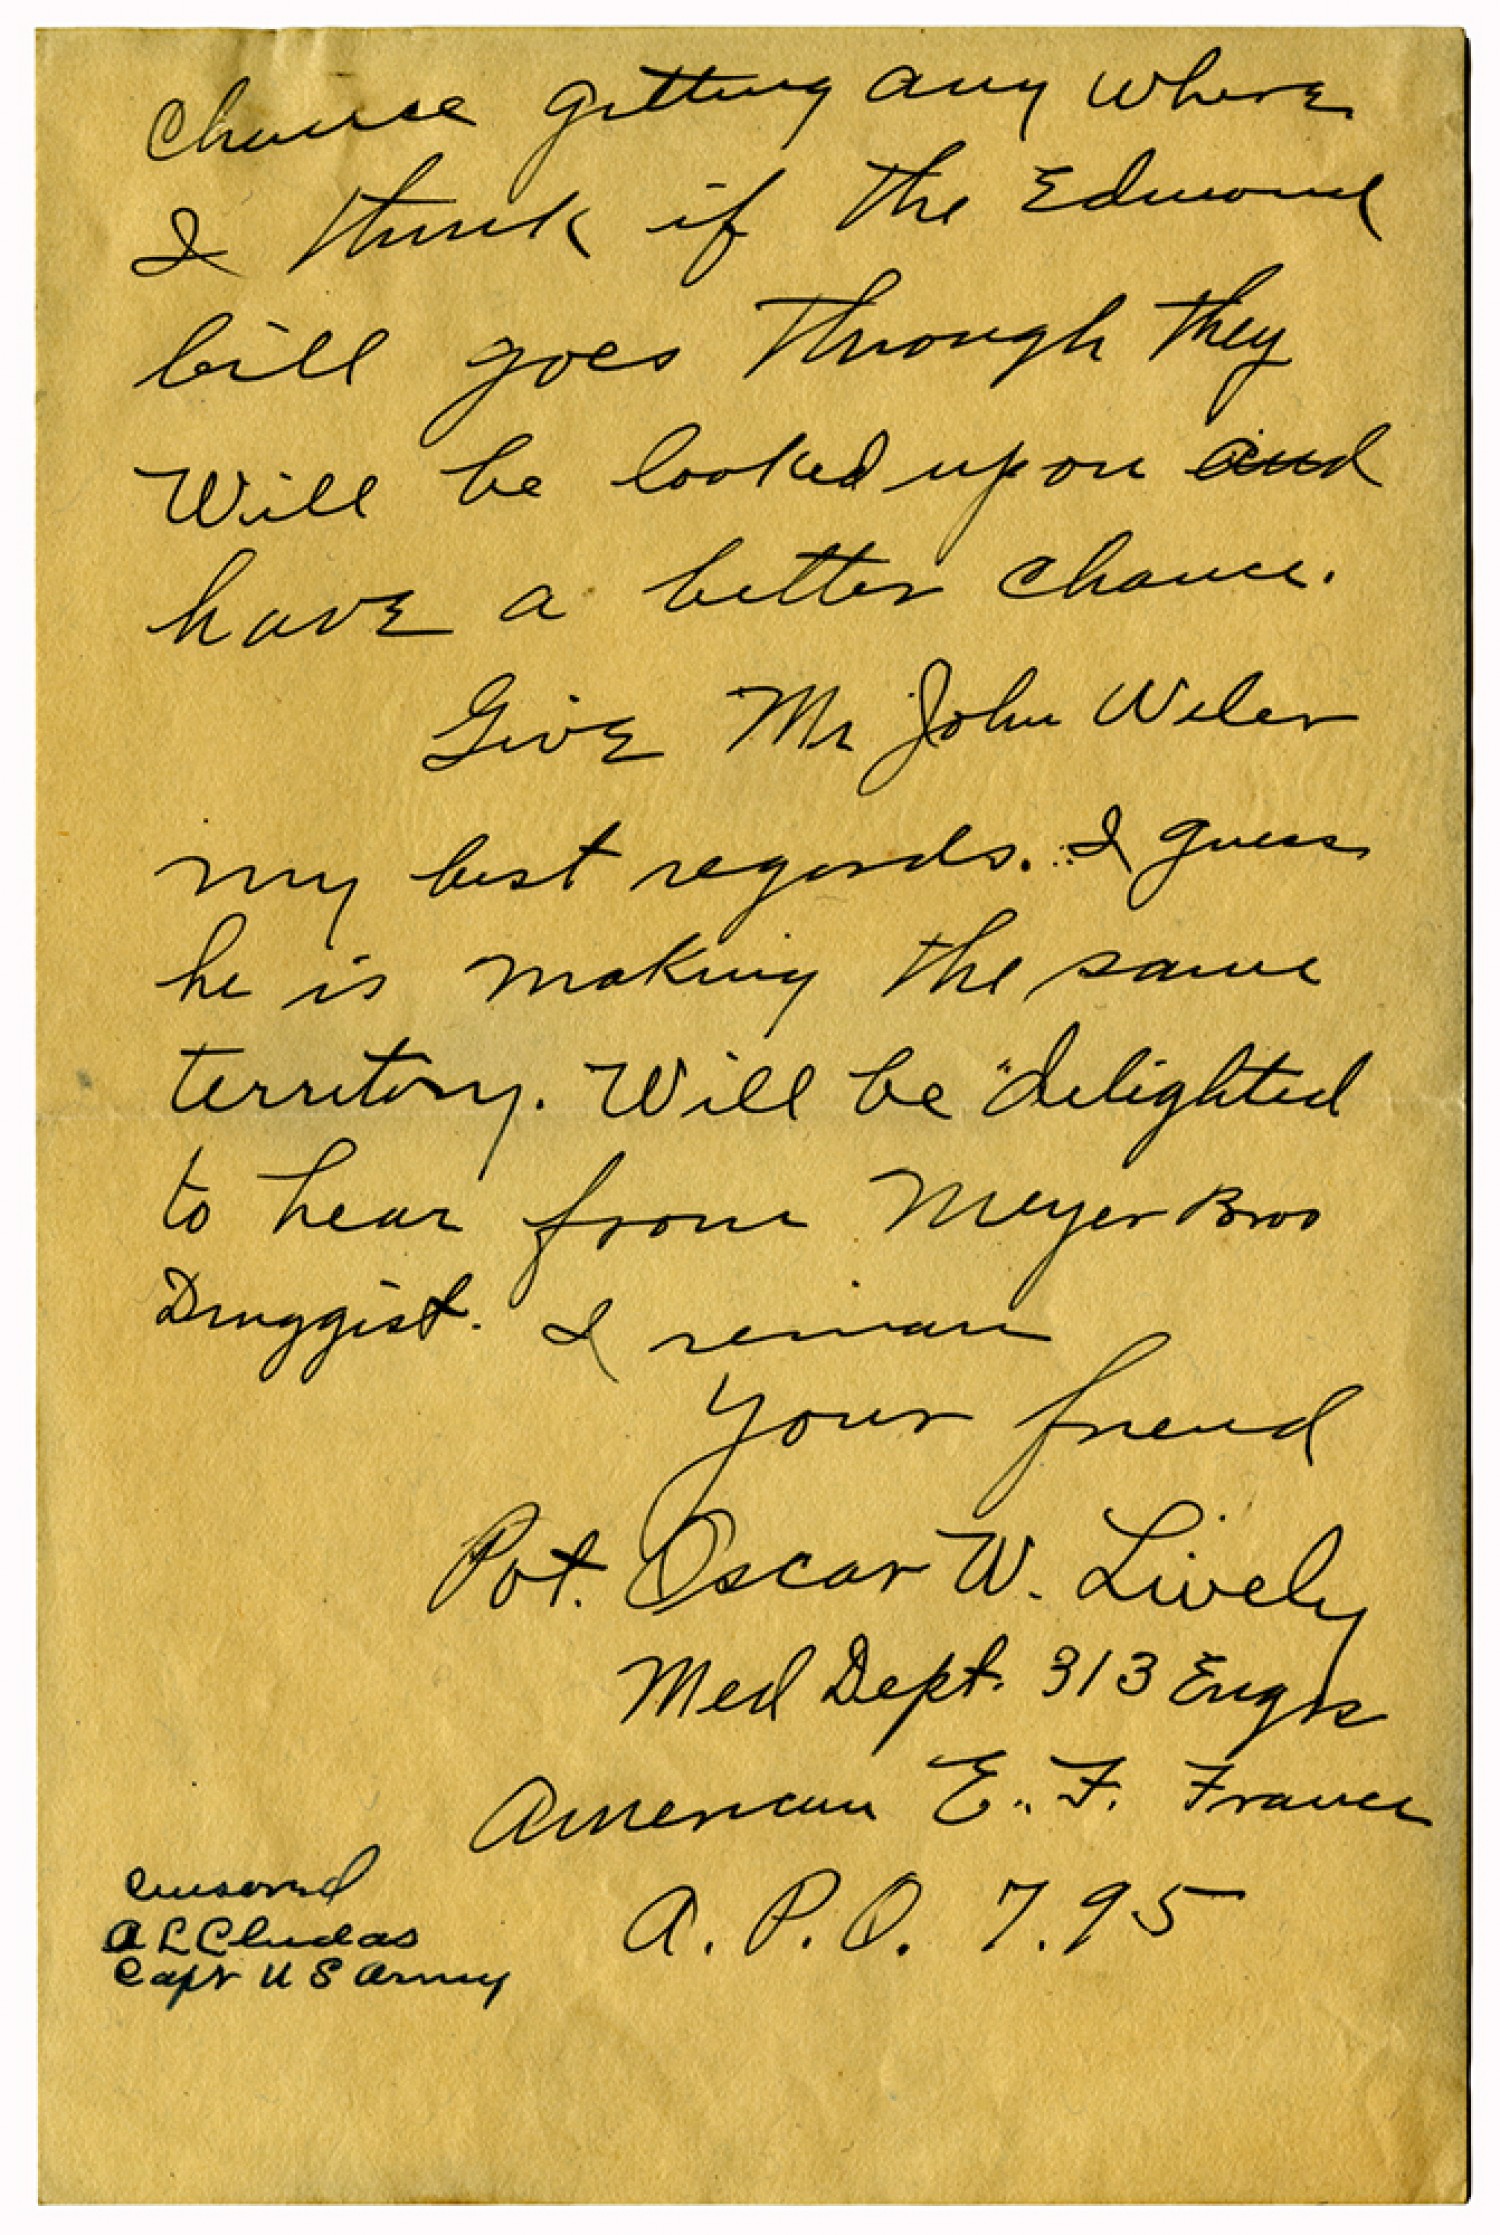 chance getting any where
I think if the Edmond
bill goes through they
Will be looked upon and
have a better chance.
Give Mr John Weler
my best regards. I guess
he is making the same
territory. Will be delighted
to hear from Meyer Bros
Druggist. I remain
Your friend
Pvt. Oscar W. Lively
Med Dept. 313 Engrs
American E. F. France
A. P. O. 7.95
Censored
A L Chudas
Capt U S Army